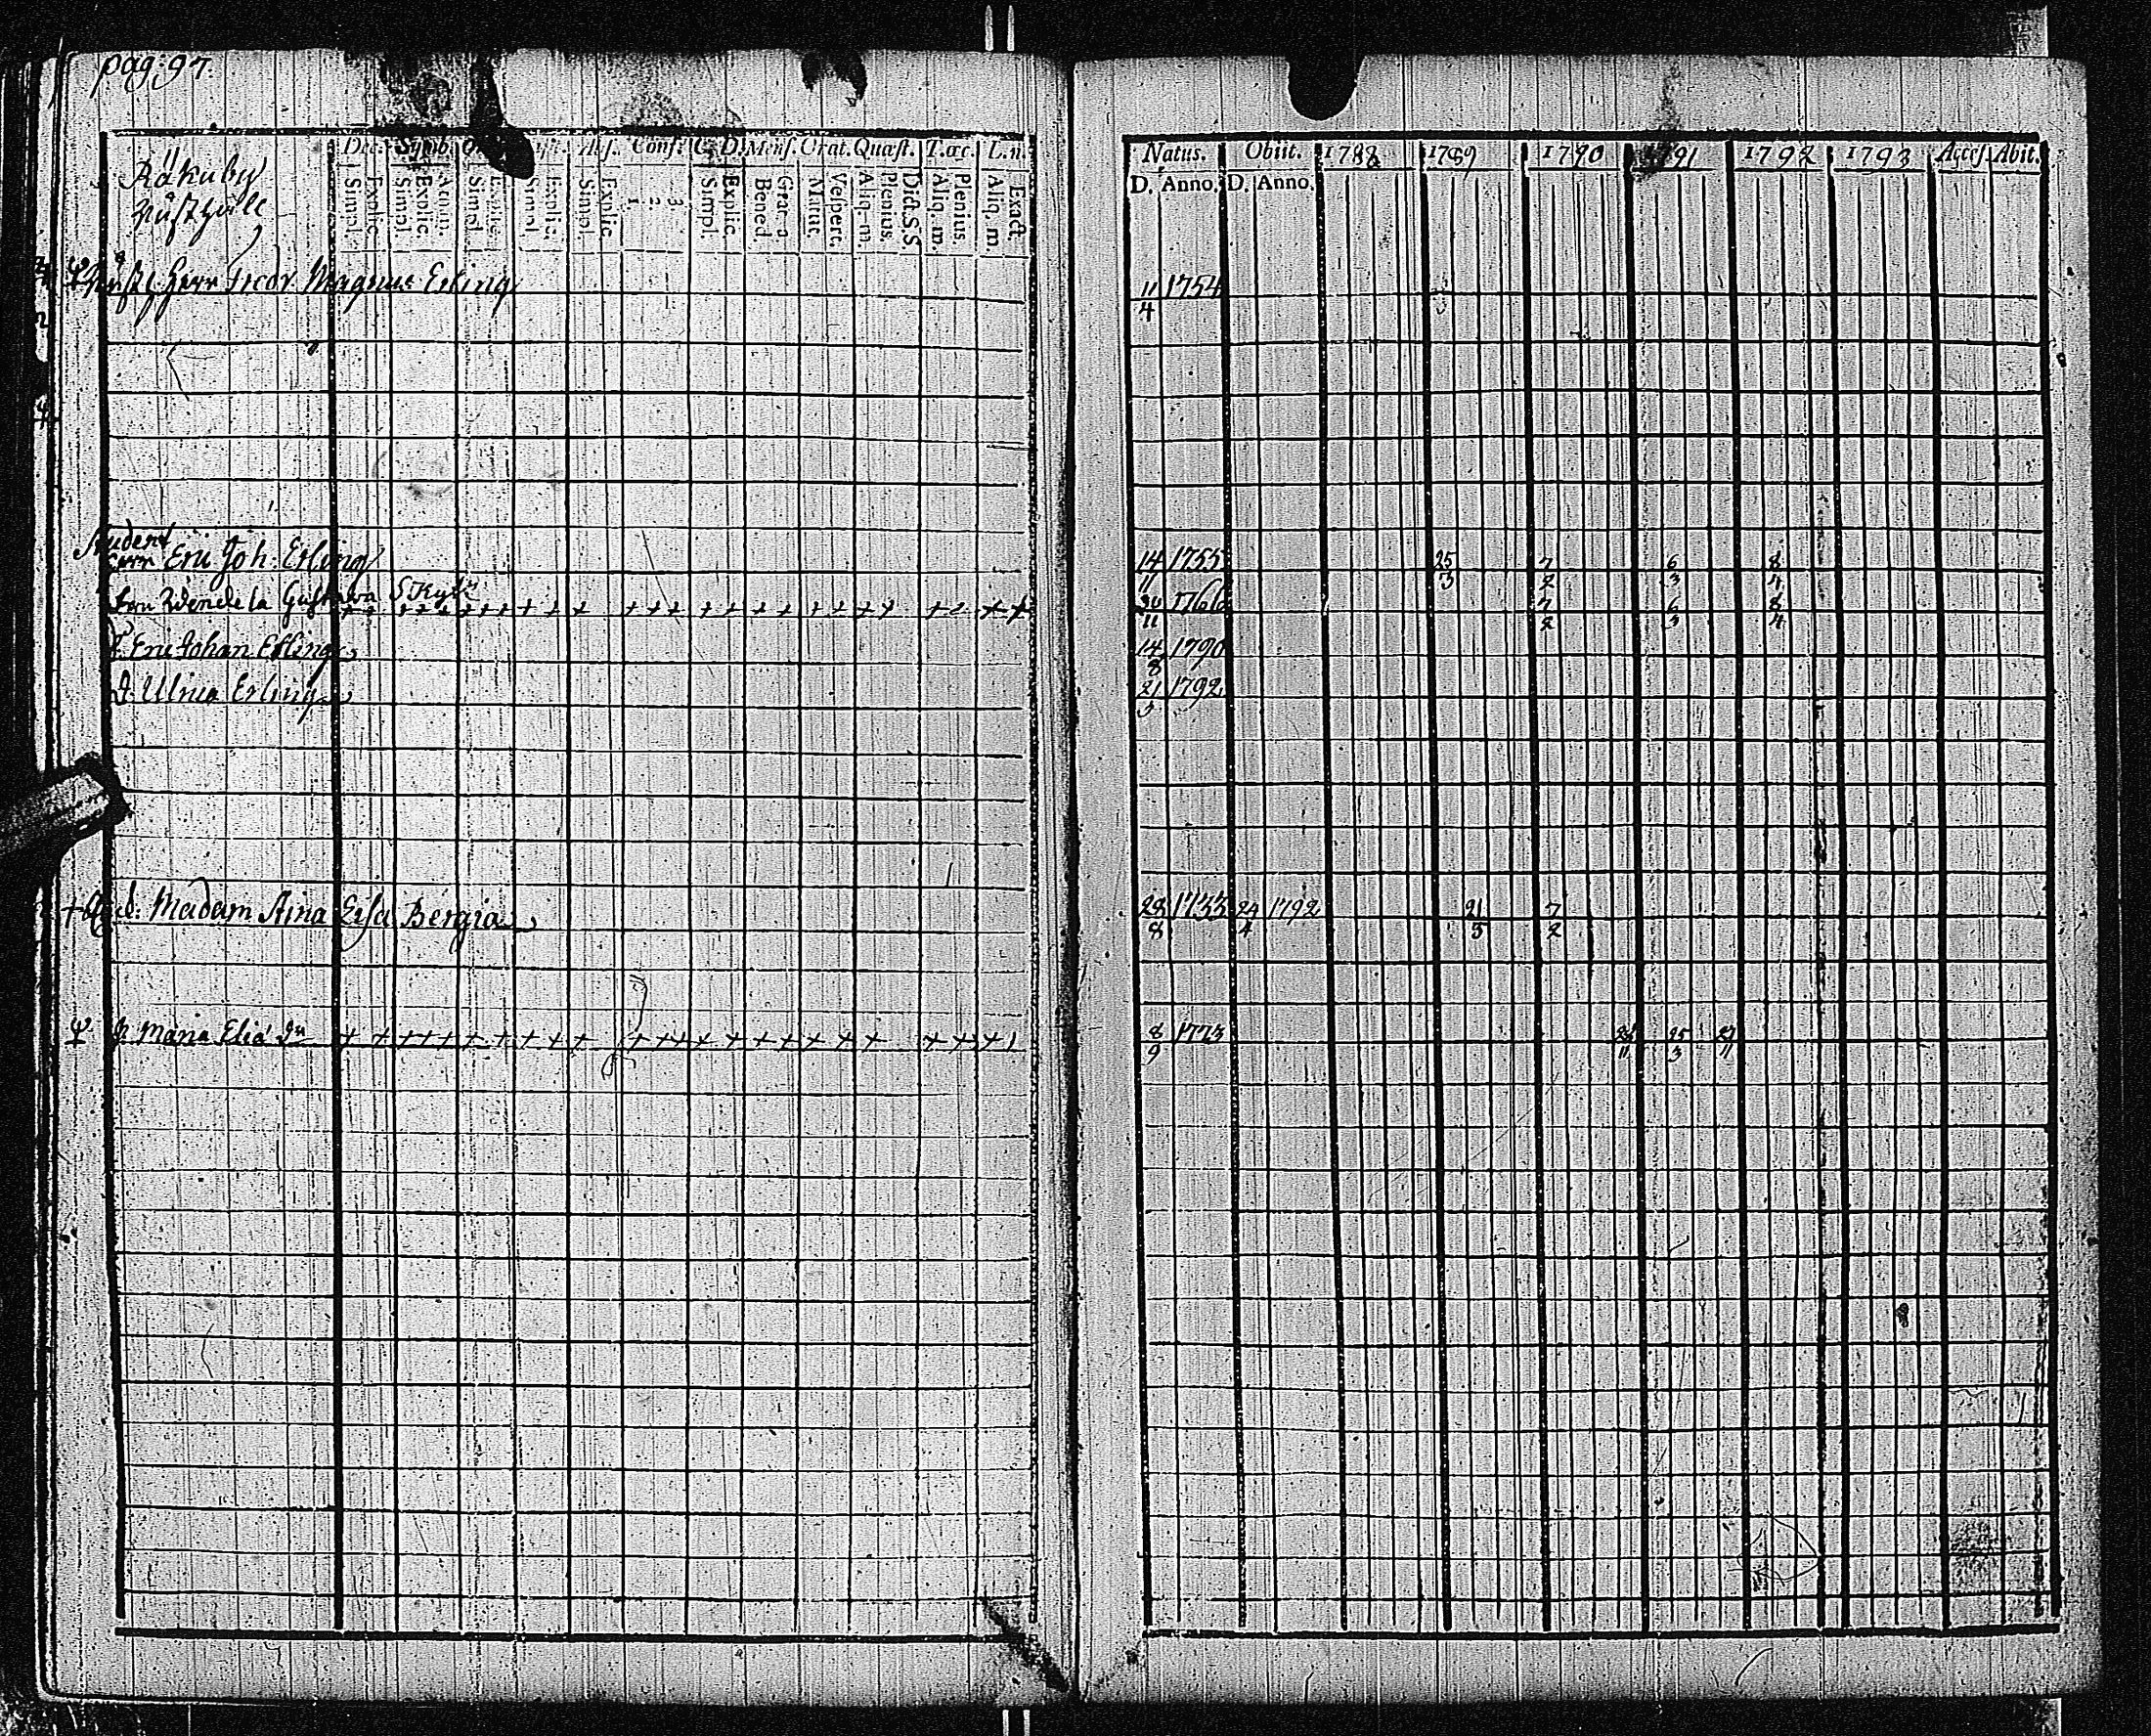 pag: 97.
Dec. Symb. Abs. Conf. C. D. Mens. Orat. Quæst. T. œc. L. n.
Simpl. Explic. Simpl. Explic. Athan. Simpl. Simpl. Explic. Simpl. Explic. 1. 2. 3. Simpl. Explic. Bened. Grat. a. Matut. Vespert. Aliq. m. Plenius. Dict. S. S. Aliq. m. Plenius. Aliq. m. Exact.
Natus. Obiit. 1788 1789 1790 1791 1792 1793 Access. Abit.
D. Anno. D. Anno.
Råkuby
Rusthåll
Herr Fredr Magnus Erling 11/4 1754
Student
Herr Eric Joh: Erling 14/11 1755 25/3 7/2 6/3 8/4
Gustava 1766 7/2 6/3 8/4
Eric Johan Erling 14/8 1790
D. Ulrica Erling 21/3 1792
Madam Aina Lisa Bergia 28/8 1733 24/4 1792 21/3 7/2
Maria Elia Dr 8/9 1773 25/3